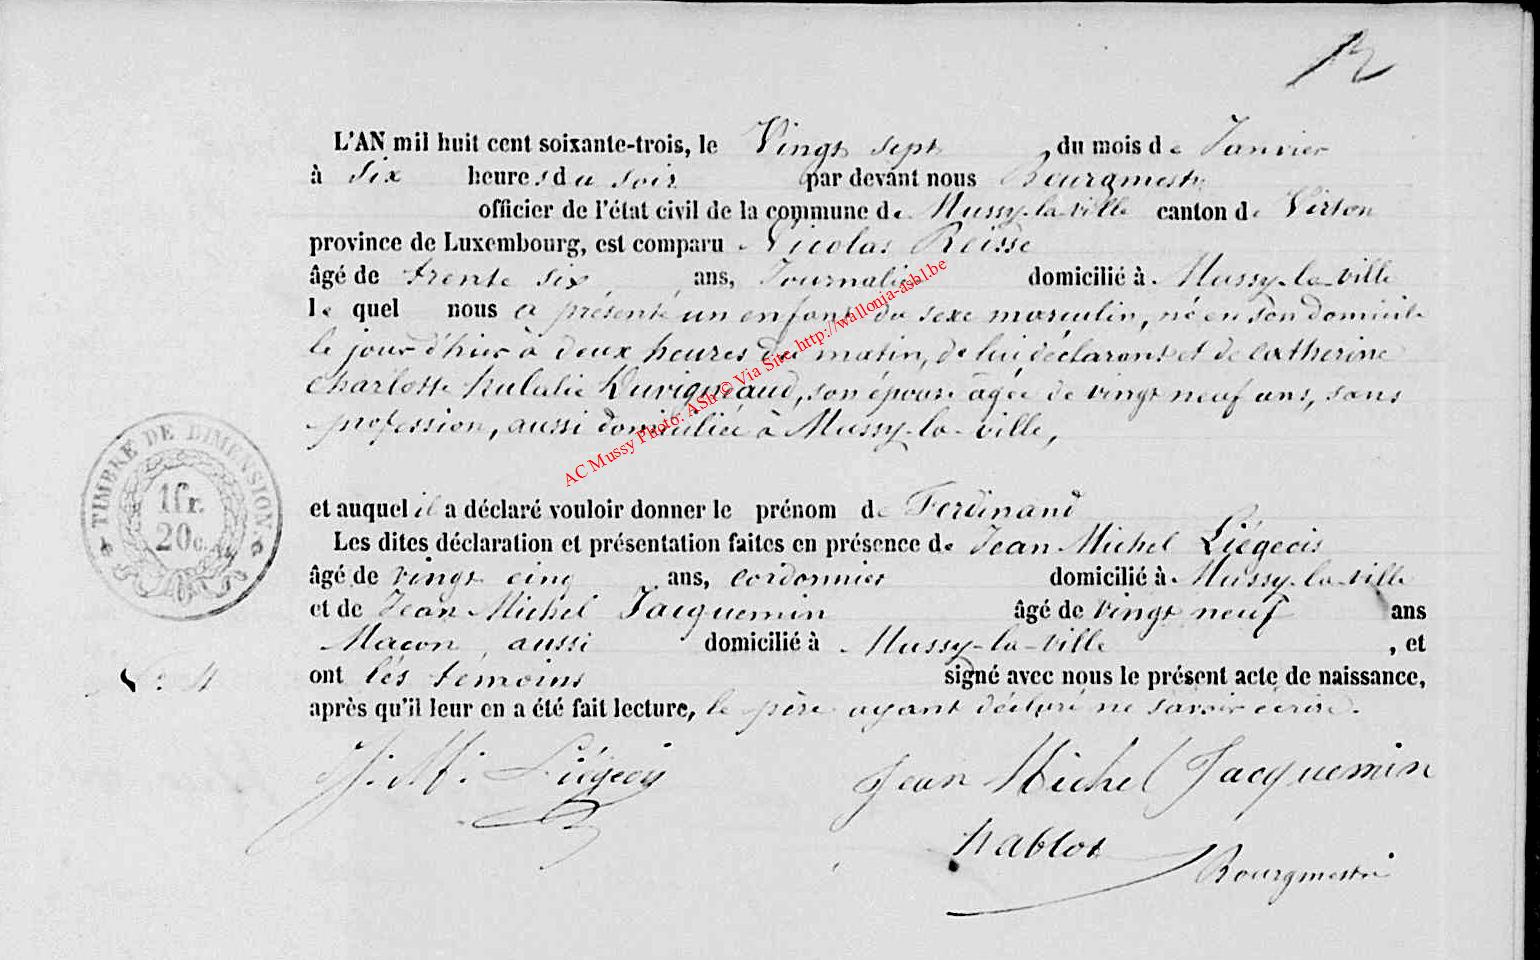 12
L'AN mil huit cent soixante-trois, le Vingt sept du mois de Janvier
à Six heures du soir par devant nous Bourgmestre
officier de l'état civil de la commune de Mussy-la-ville canton de Virton
province de Luxembourg, est comparu Nicolas Reisse
âgé de trente six ans, Journalier domicilié à Mussy-la-ville
le quel nous a présenté un enfant du sexe masculin, né en son domicile
le jour d'hier à deux heures du matin, de lui, déclarant et de Catherine
Charlotte Eulalie Duvigneaud, son épouse âgée de vingt neuf ans, sans
profession, aussi domiciliée à Mussy-la-ville,
et auquel il a déclaré vouloir donner le prénom de Ferdinand
Les dites déclaration et présentation faites en présence de Jean Michel Liégeois
âgé de vingt cinq ans, cordonnier domicilié à Mussy-la-ville
et de Jean Michel Jacquemin âgé de vingt neuf ans
Maçon, aussi domicilié à Mussy-la-ville, et
ont les témoins signé avec nous le présent acte de naissance,
après qu'il leur en a été fait lecture, le père ayant déclaré ne savoir écrire.
J. M. Liégeois Jean Michel Jacquemin
Nablot Bourgmestre
TIMBRE DE DIMENSION
1fr.
20c.
AC Mussy Photo: ASh © Via Site, http://wallonia-asbl.be